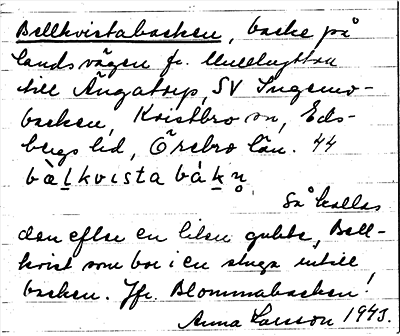 Bellkvistabacken, backe på
landsvägen fr. Mullhyttan
till Ängatorp, SV Ingemo-
backen, Kvistbro sn, Eds-
bergs hd, Örebro län. 44
bæ̀ḷkvista bákn̥
Så kallas
den efter en liten gubbe, Bell-
kvist som bor i en stuga intill
backen. Jfr. Blommabacken!
Anna Larsson 1943.